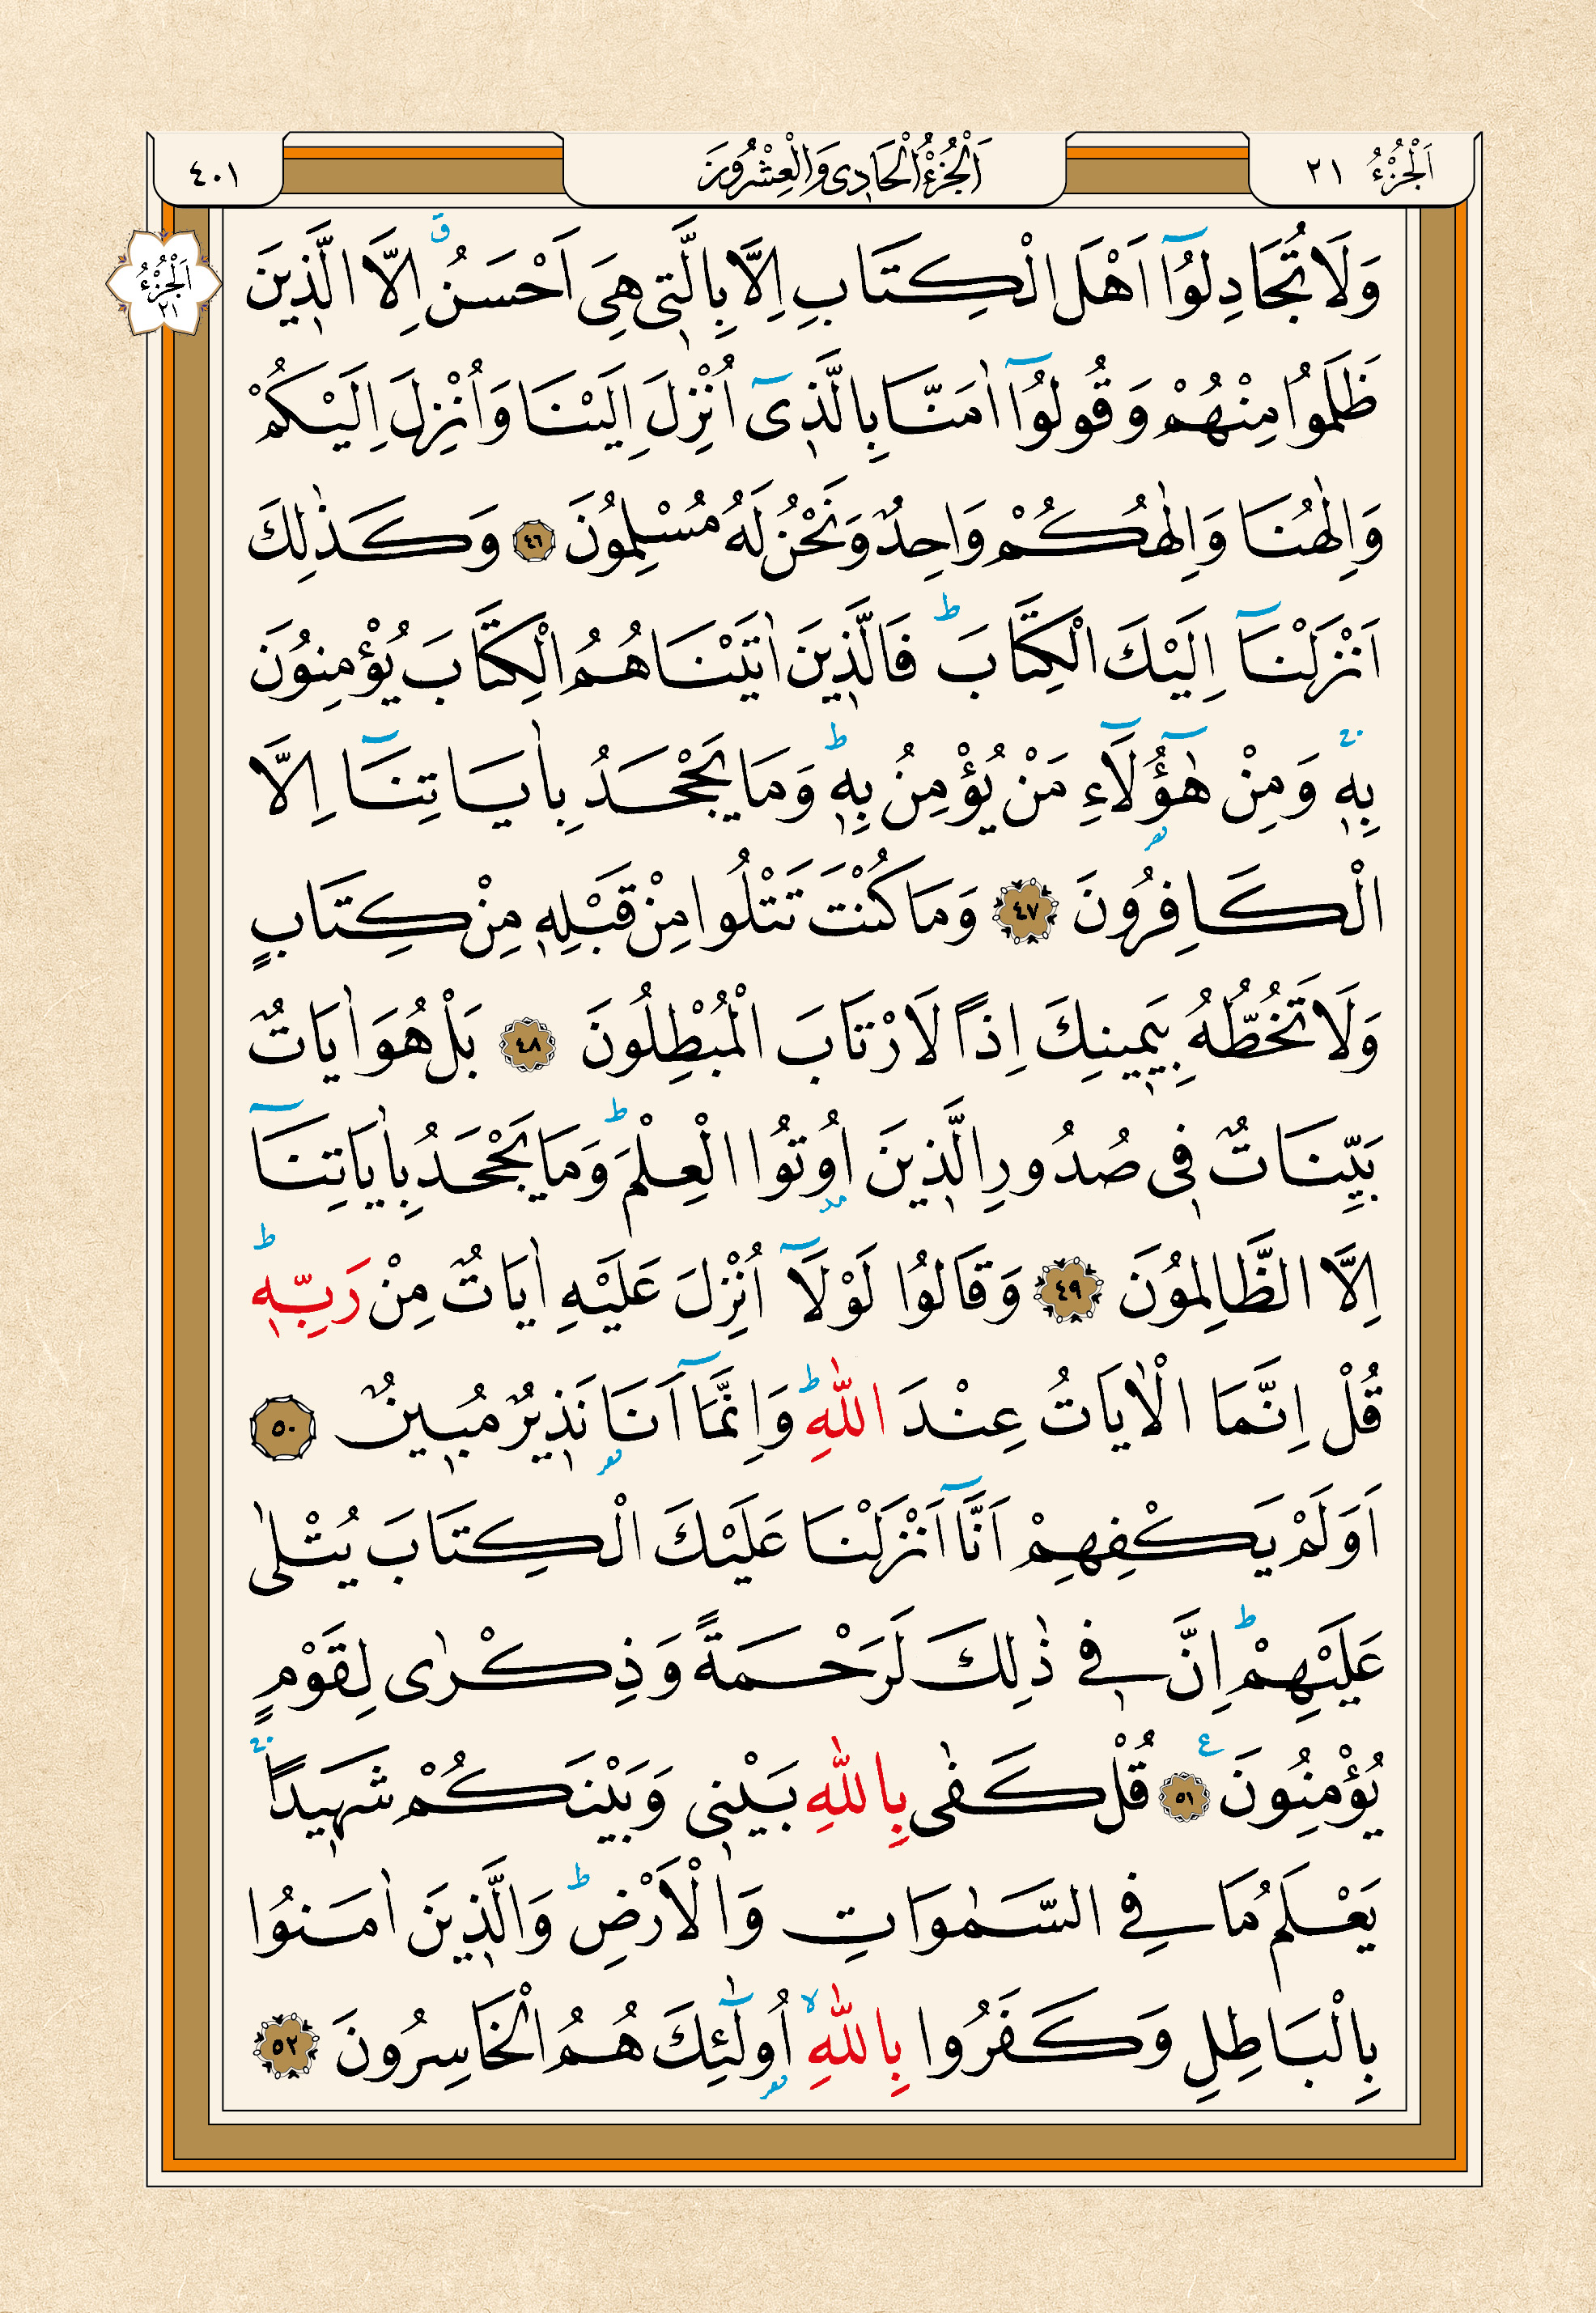 اَلْجُزْءُ ٢١
اَلْجُزْءُ الْحَادِى وَالْعِشْرُونَ
٤٠١
اَلْجُزْءُ
٢١
وَلَا تُجَادِلُٓوا اَهْلَ الْكِتَابِ اِلَّا بِالَّت۪ي هِيَ اَحْسَنُۗ اِلَّا الَّذ۪ينَ
ظَلَمُوا مِنْهُمْ وَقُولُٓوا اٰمَنَّا بِالَّذ۪ٓي اُنْزِلَ اِلَيْنَا وَاُنْزِلَ اِلَيْكُمْ
وَاِلٰهُنَا وَاِلٰهُكُمْ وَاحِدٌ وَنَحْنُ لَهُ مُسْلِمُونَ ٤٦ وَكَذٰلِكَ
اَنْزَلْنَٓا اِلَيْكَ الْكِتَابَۜ فَالَّذ۪ينَ اٰتَيْنَاهُمُ الْكِتَابَ يُؤْمِنُونَ
بِه۪ۚ وَمِنْ هٰٓؤُ۬لَٓاءِ مَنْ يُؤْمِنُ بِه۪ۜ وَمَا يَجْحَدُ بِاٰيَاتِنَٓا اِلَّا
الْكَافِرُونَ ٤٧ وَمَا كُنْتَ تَتْلُوا مِنْ قَبْلِه۪ مِنْ كِتَابٍ
وَلَا تَخُطُّهُ بِيَم۪ينِكَ اِذًا لَارْتَابَ الْمُبْطِلُونَ ٤٨ بَلْ هُوَ اٰيَاتٌ
بَيِّنَاتٌ ف۪ي صُدُورِ الَّذ۪ينَ اُو۫تُوا الْعِلْمَۜ وَمَا يَجْحَدُ بِاٰيَاتِنَٓا
اِلَّا الظَّالِمُونَ ٤٩ وَقَالُوا لَوْلَٓا اُنْزِلَ عَلَيْهِ اٰيَاتٌ مِنْ رَبِّه۪ۜ
قُلْ اِنَّمَا الْاٰيَاتُ عِنْدَ اللّٰهِۜ وَاِنَّمَٓا اَنَا۬ نَذ۪يرٌ مُب۪ينٌ ٥٠
اَوَلَمْ يَكْفِهِمْ اَنَّٓا اَنْزَلْنَا عَلَيْكَ الْكِتَابَ يُتْلٰى
عَلَيْهِمْۜ اِنَّ ف۪ي ذٰلِكَ لَرَحْمَةً وَذِكْرٰى لِقَوْمٍ
يُؤْمِنُونَ۟ ٥١ قُلْ كَفٰى بِاللّٰهِ بَيْن۪ي وَبَيْنَكُمْ شَه۪يدًاۚ
يَعْلَمُ مَا فِي السَّمٰوَاتِ وَالْاَرْضِۜ وَالَّذ۪ينَ اٰمَنُوا
بِالْبَاطِلِ وَكَفَرُوا بِاللّٰهِۙ اُو۬لٰٓئِكَ هُمُ الْخَاسِرُونَ ٥٢